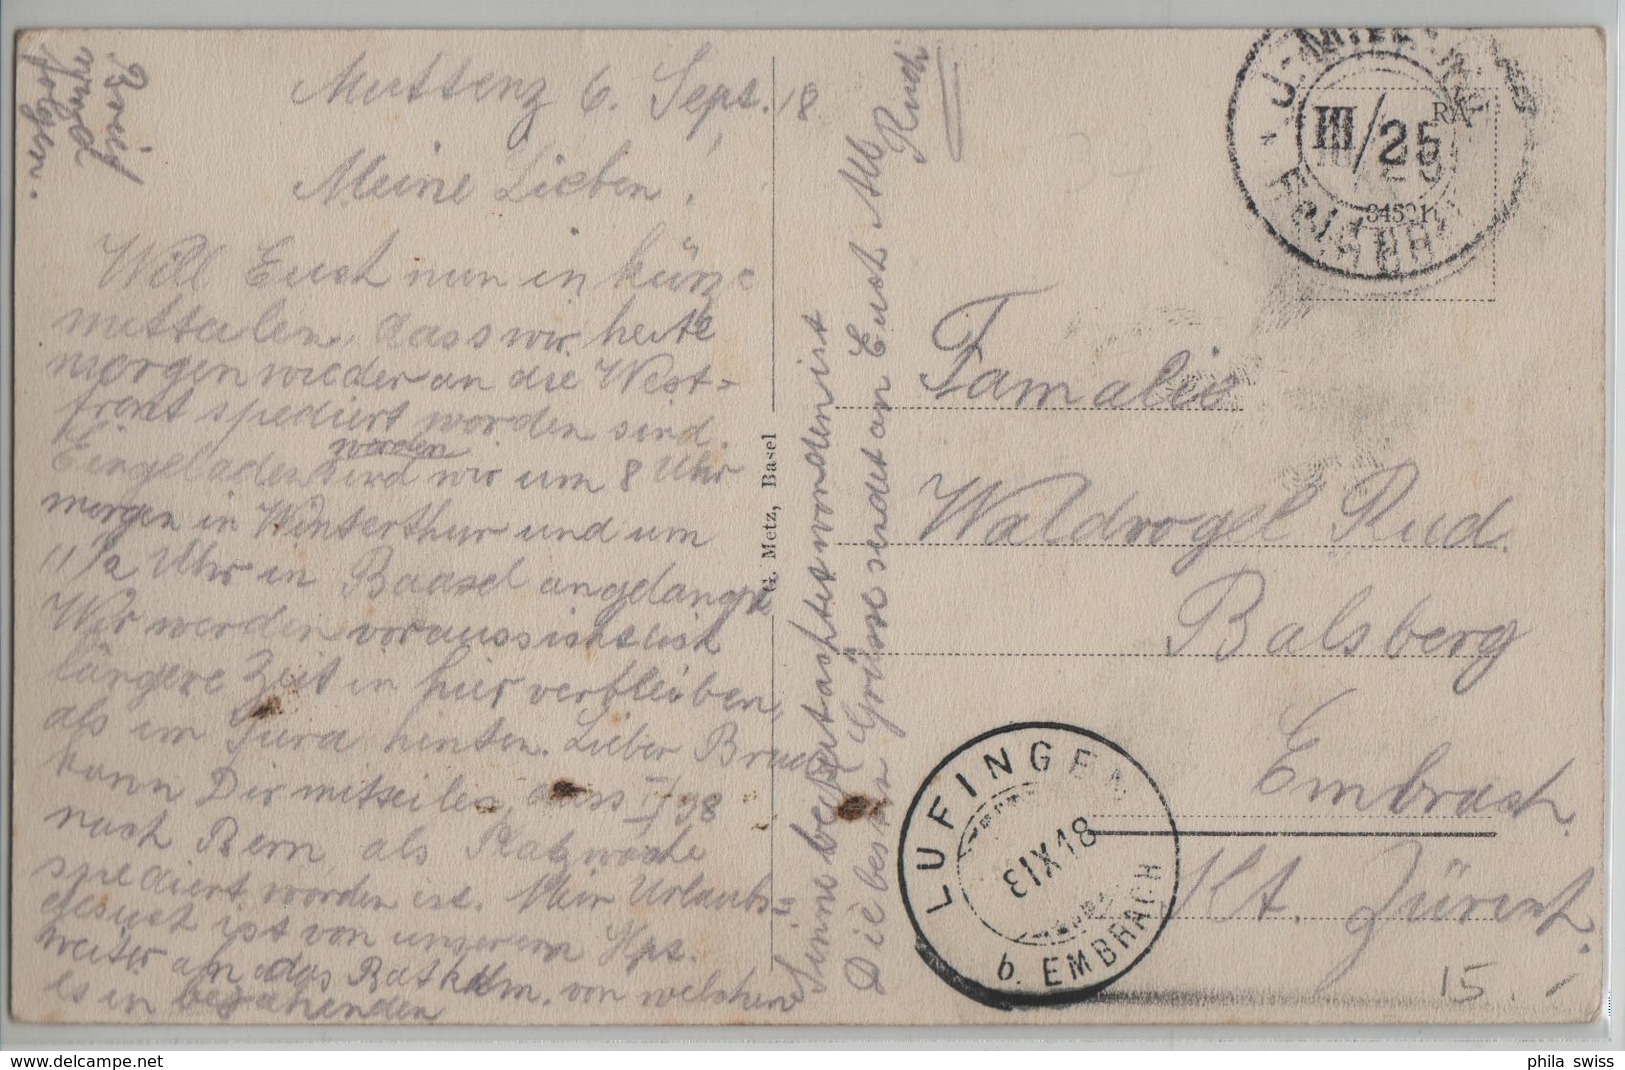 Brief
wird
folgen.
Muttenz 6. Sept. 18
Meine Lieben,
Will Euch nun in kürz=
mitteilen, dass wir heute
morgen wieder an die West=
front spediert worden sind.
worden
Eingeladen sind wir um 8 Uhr
morgen in Winterthur und um
11 1/2 Uhr in Baasel angelangt
Wir werden voraussichtlich
längere Zeit in hier verbleiben,
als im Jura hinten. Lieber Bruder
kann Dir mitteilen, dass II/98
nach Bern als Platzwache
spediert worden ist. Mein Urlaubs=
gesuch ist von unserem Hps.
weiter an das Batkdm. von welchem
es in
Sinne begutachtet worden ist
Die besten Grüsse sendet an Euch All
Rudi
G. Metz, Basel
III/25
34521
Familie
Waldvogel Rud.
Balsberg
Embrach.
Kt. Zürich.
LUFINGEN
6 IX 18
b. EMBRACH
15.-
phila swiss
www.delcampe.net